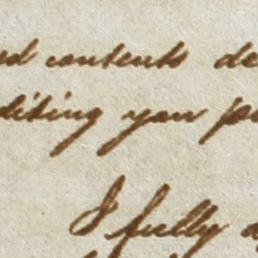 ed contents de
diting you po
I fully a